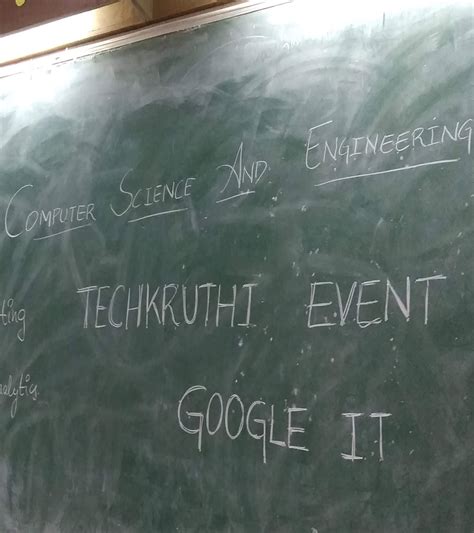 COMPUTER SCIENCE AND ENGINEERING
TECHKRUTHI EVENT
GOOGLE IT